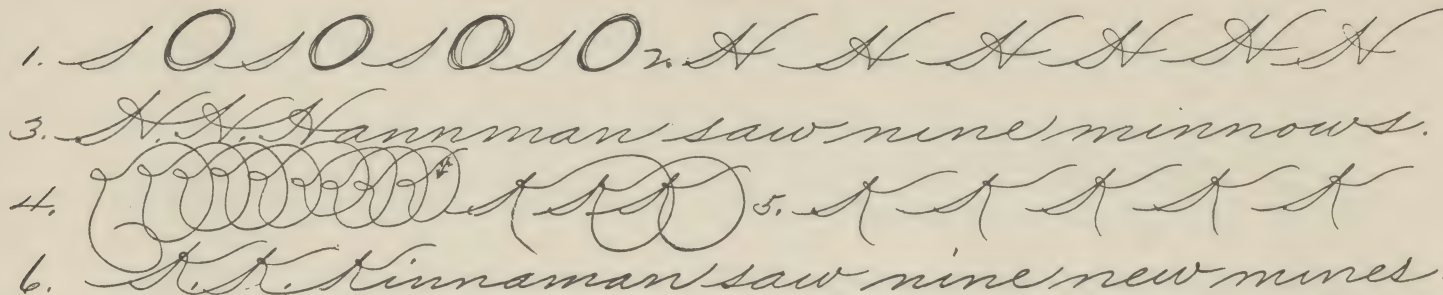 1. S O S O S O S O 2. H H H H H H
3. H. H. Hannman saw nine minnows.
4. K K K 5. K K K K K
6. K. K. Kinnaman saw nine new mines